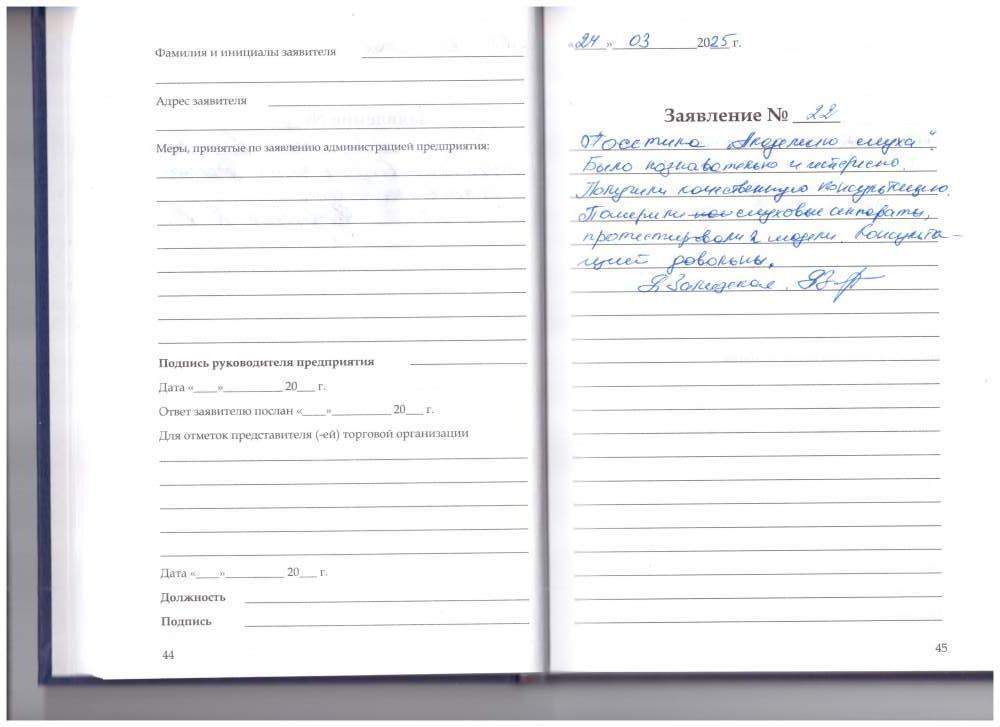 Фамилия и инициалы заявителя
Адрес заявителя
Меры, принятые по заявлению администрацией предприятия:
Подпись руководителя предприятия
Дата «____»__________ 20___ г.
Ответ заявителю послан «____»__________ 20___ г.
Для отметок представителя (-ей) торговой организации
Дата «____»__________ 20___ г.
Должность
Подпись
44
«24» 03 2025 г.
Заявление № 22
Посетила "Академию слуха".
Было познавательно и интересно.
Получили качественную консультацию.
Померили слуховые аппараты,
протестировали 2 модели. Консульта-
цией довольны.
45